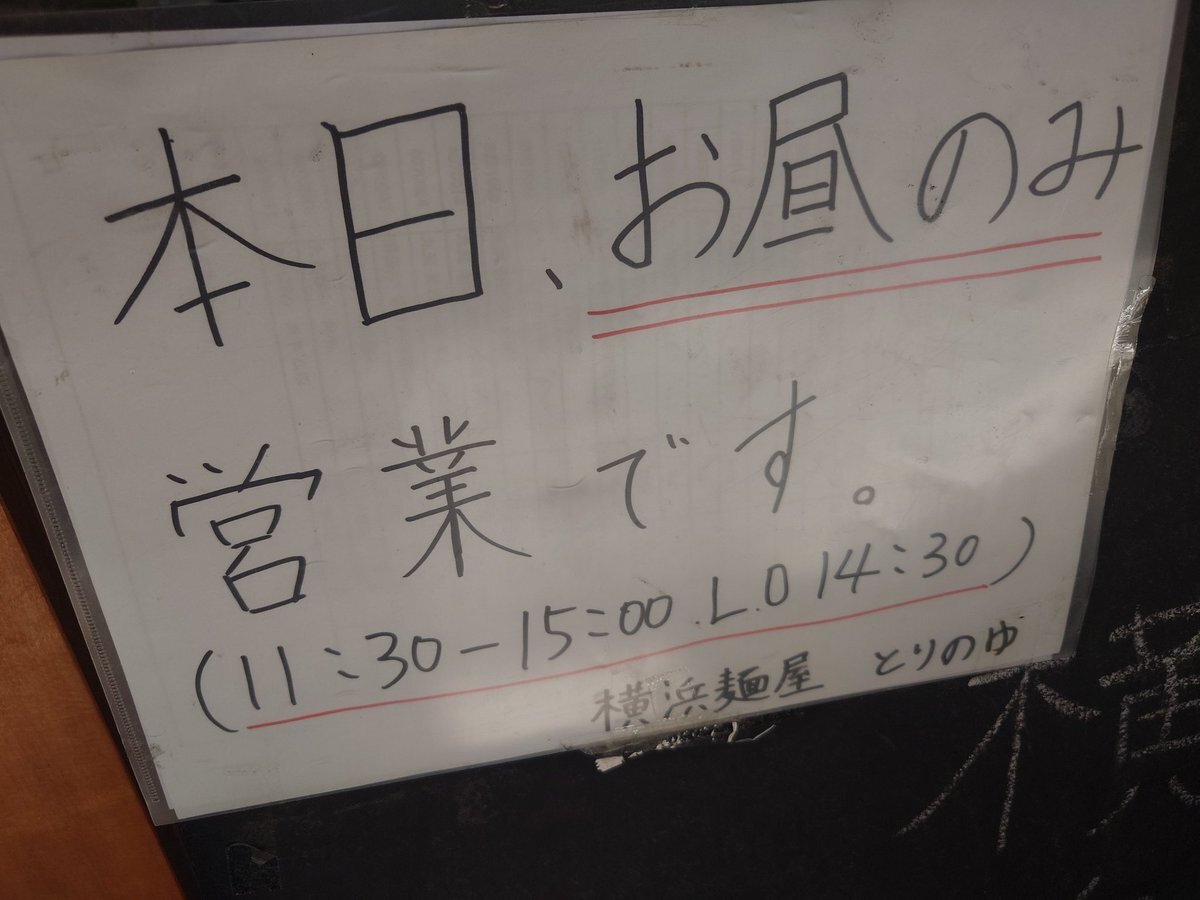 本日、お昼のみ
営業です。
(11:30-15:00.L.O 14:30)
横浜麺屋 とりのゆ
横